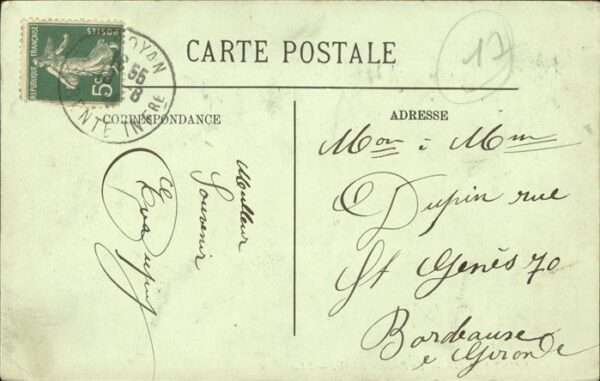 RÉPUBLIQUE FRANÇAISE
POSTES
5c
ROYAN
55
8
NTE INFRE
CARTE POSTALE
17
CORRESPONDANCE
ADRESSE
Meilleur
Souvenir
Eva Dupin
Mon & Mme
Dupin rue
St Genès 70
Bordeaux
Gironde